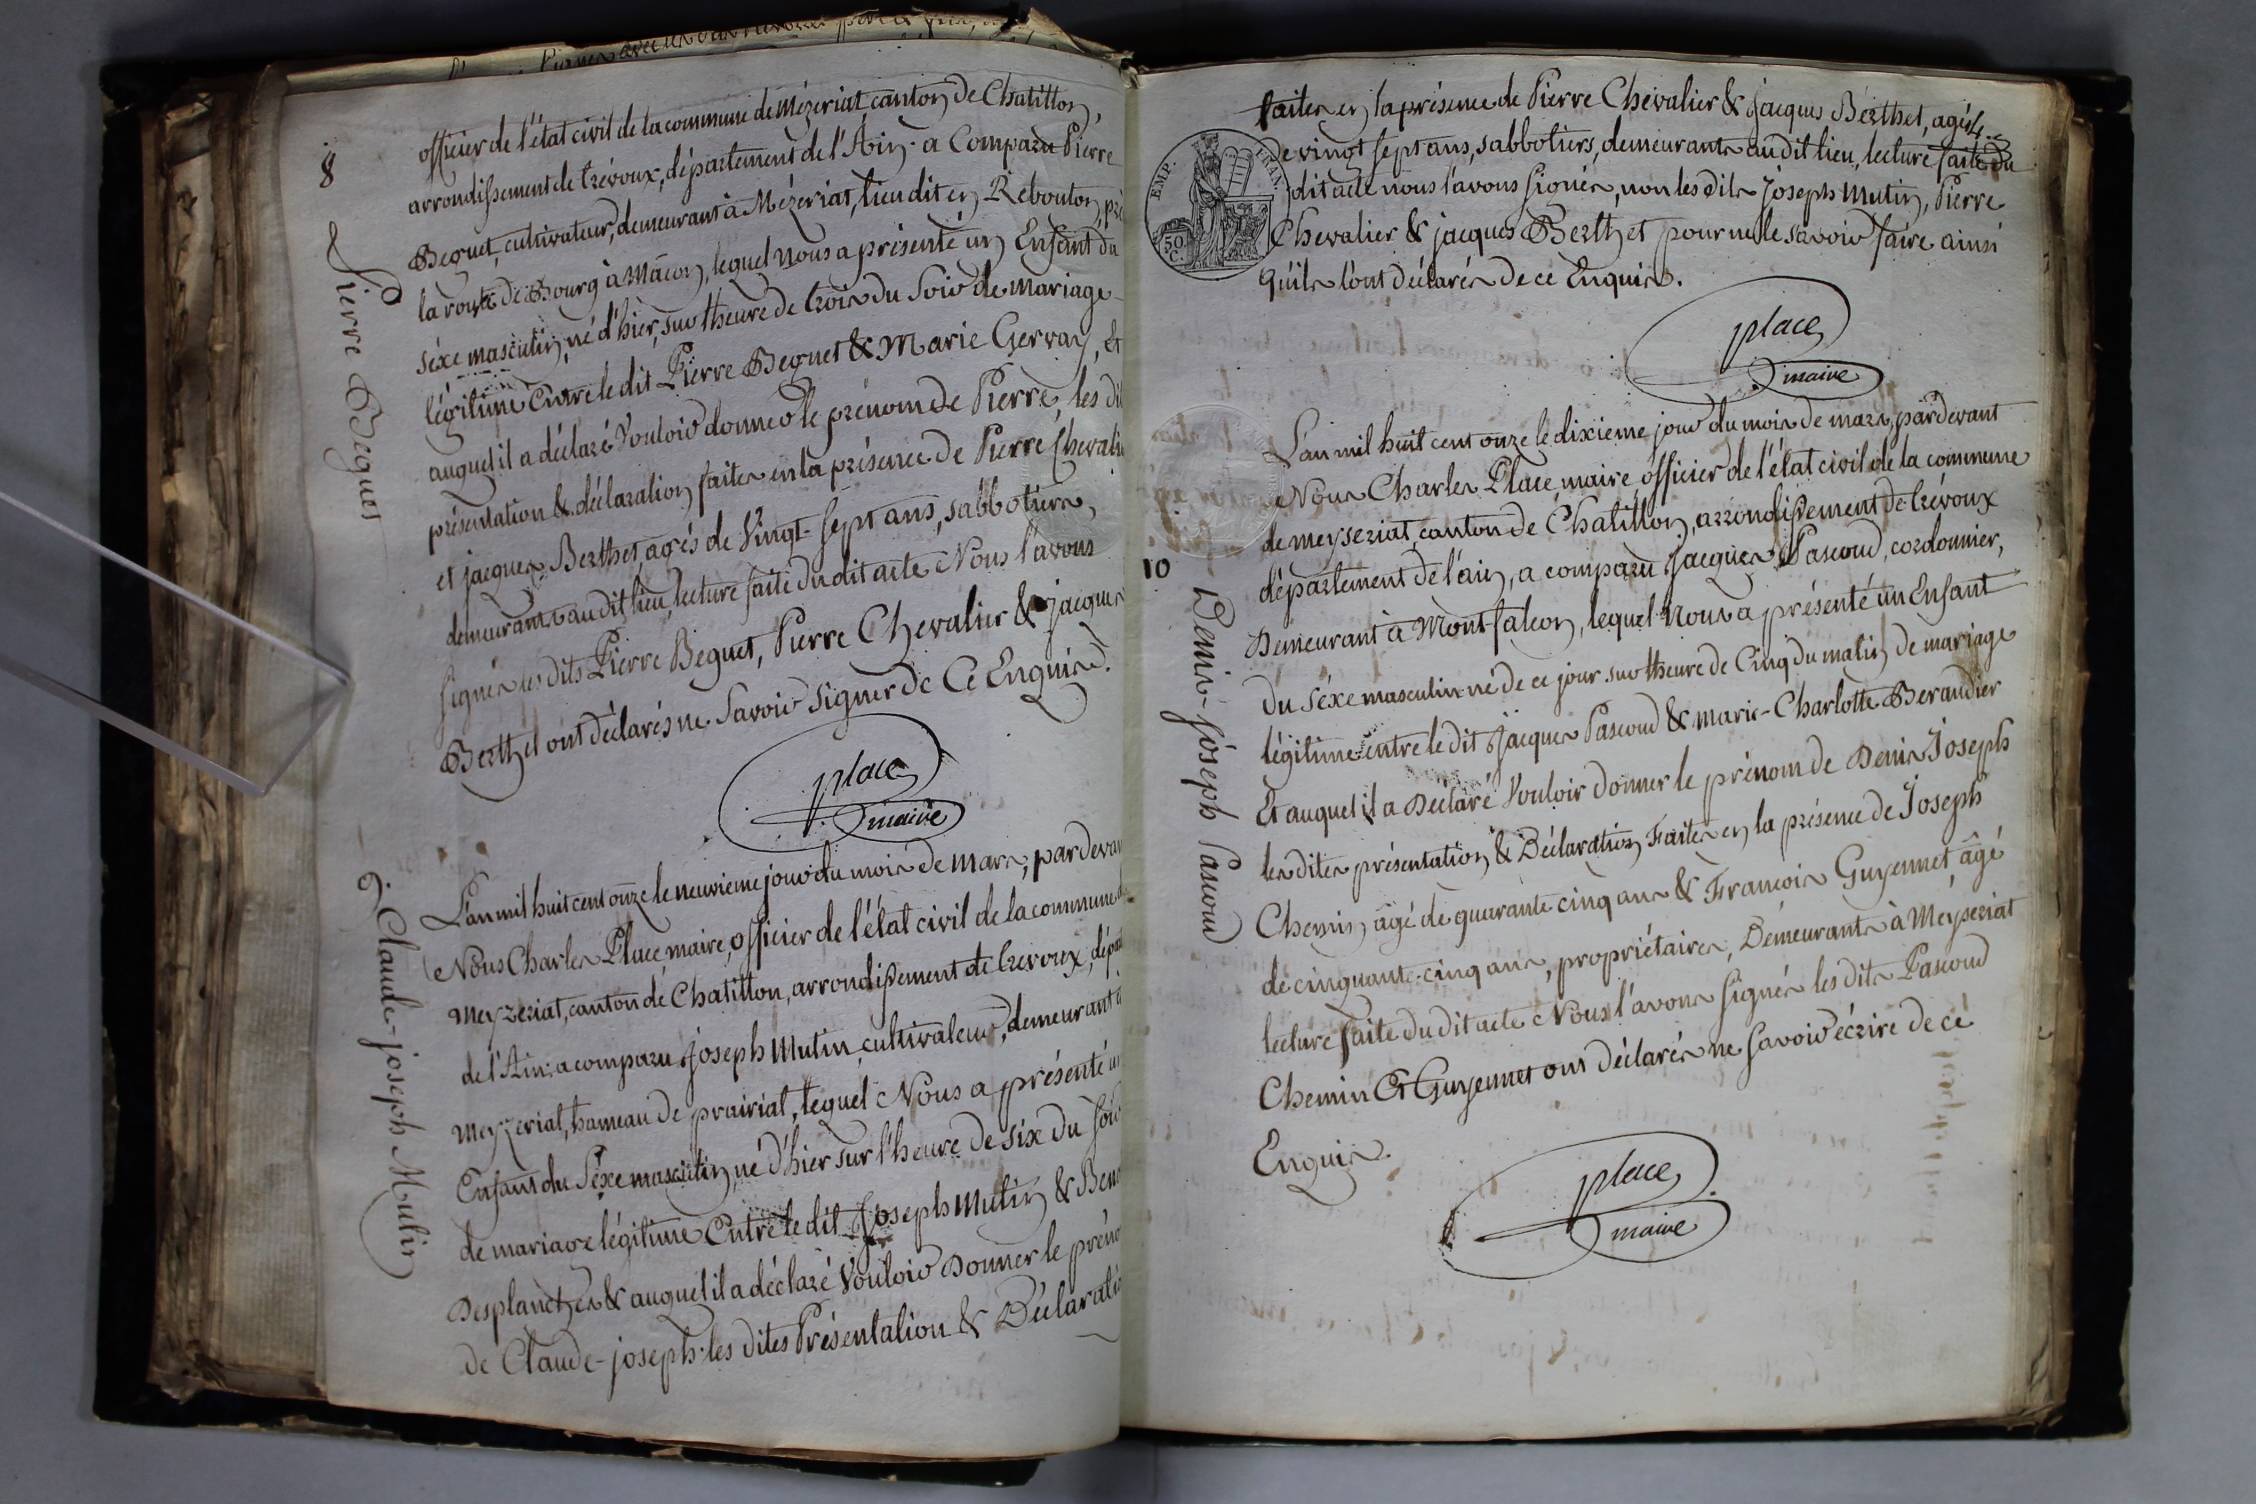 8
Pierre Beguet
officier de l'état civil de la commune de Mézeriat canton de Chatillon,
arrondissement de trévoux, département de l'Ain. a Comparu Pierre
Beguet, cultivateur, demeurant à Mézeriat, lieu dit en Rebouton, prè
la route de Bourg à Mâcon, lequel nous a présenté un Enfant du
séxe masculin, né d'hier, sur l'heure de trois du Soir de mariage
légitime Entre le dit Pierre Beguet & Marie Gervay, Et
auquel il a déclaré Vouloir donner le prénom de Pierre, les dit
présentation & déclaration faites en la présence de Pierre Chevalie
et jacques Berthet, agés de Vingt-sept ans, sabbotiers,
demeurants au dit lieu, lecture faite du dit acte Nous l'avons
signés les dits Pierre Beguet, Pierre Chevalier & jacques
Berthet ont déclarés ne Savoir Signer de Ce Enquis.
place
maire
9.
Claude-joseph Mutin
L'an mil huit cent onze le neuvieme jour du mois de mars, pardevan
Nous Charles Place maire, officier de l'état civil de la commune d
Meyzeriat, canton de Chatillon, arrondissement de trevoux, dépar
de l'Ain; a comparu Joseph Mutin, cultivateur, demeurant à
Meyzeriat, hameau de prairial, lequel Nous a présenté un
Enfant du Séxe masculin, né d'hier sur l'heure de six du soir
de mariage légitime Entre le dit Joseph Mutin & Beno
Desplanches & auquel il a déclaré Vouloir Donner le préno
de Claude-joseph. les dites Présentation & Déclaratio
faites en la présence de Pierre Chevalier & jacques Berthet, agés
de vingt sept ans, sabbotiers, demeurants au dit lieu, lecture faite du
dit acte nous l'avons signés, non les dits Joseph Mutin, Pierre
Chevalier & jacques Berthet pour ne le savoir faire ainsi
qu'ils l'ont déclarés de ce Enquis.
EMP. FRAN.
50
C.
place
maire
10
Denis-joseph Pascoud
L'an mil huit cent onze le dixieme jour du mois de mars, pardevant
Nous Charles Place maire, officier de l'état civil de la commune
de meyseriat, canton de Chatillon, arrondissement de trévoux
département de l'ain, a comparu Jacques Pascoud, cordonnier,
Demeurant à Montfalcon, lequel Nous a présenté un Enfant
Du séxe masculin né de ce jour sur l'heure de Cinq du matin de mariage
légitime entre le dit Jacques Pascoud & marie-Charlotte Beraudier
Et auquel il a Déclaré Vouloir Donner le prénom de Denis Joseph
les dites présentation & Déclaration Faites en la présence de Joseph
Chemin, âgé de quarante cinq ans & Francois Guyennet, âgé
de cinquante-cinq ans, propriétaires, Demeurants à Meyseriat
lecture faite du dit acte Nous l'avons signés les dits Pascoud
Chemin Et Guyennet ont déclarés ne Savoir écrire de ce
Enquis.
place
maire